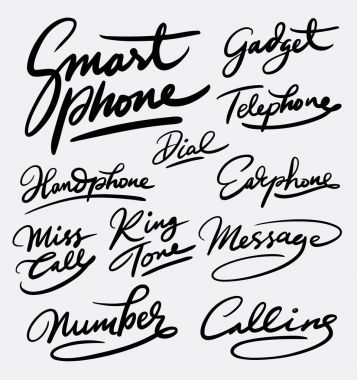 Smart
phone
Gadget
Telephone
Dial
Handphone
Earphone
Miss
Call
Ring
Tone
Message
Number
Calling